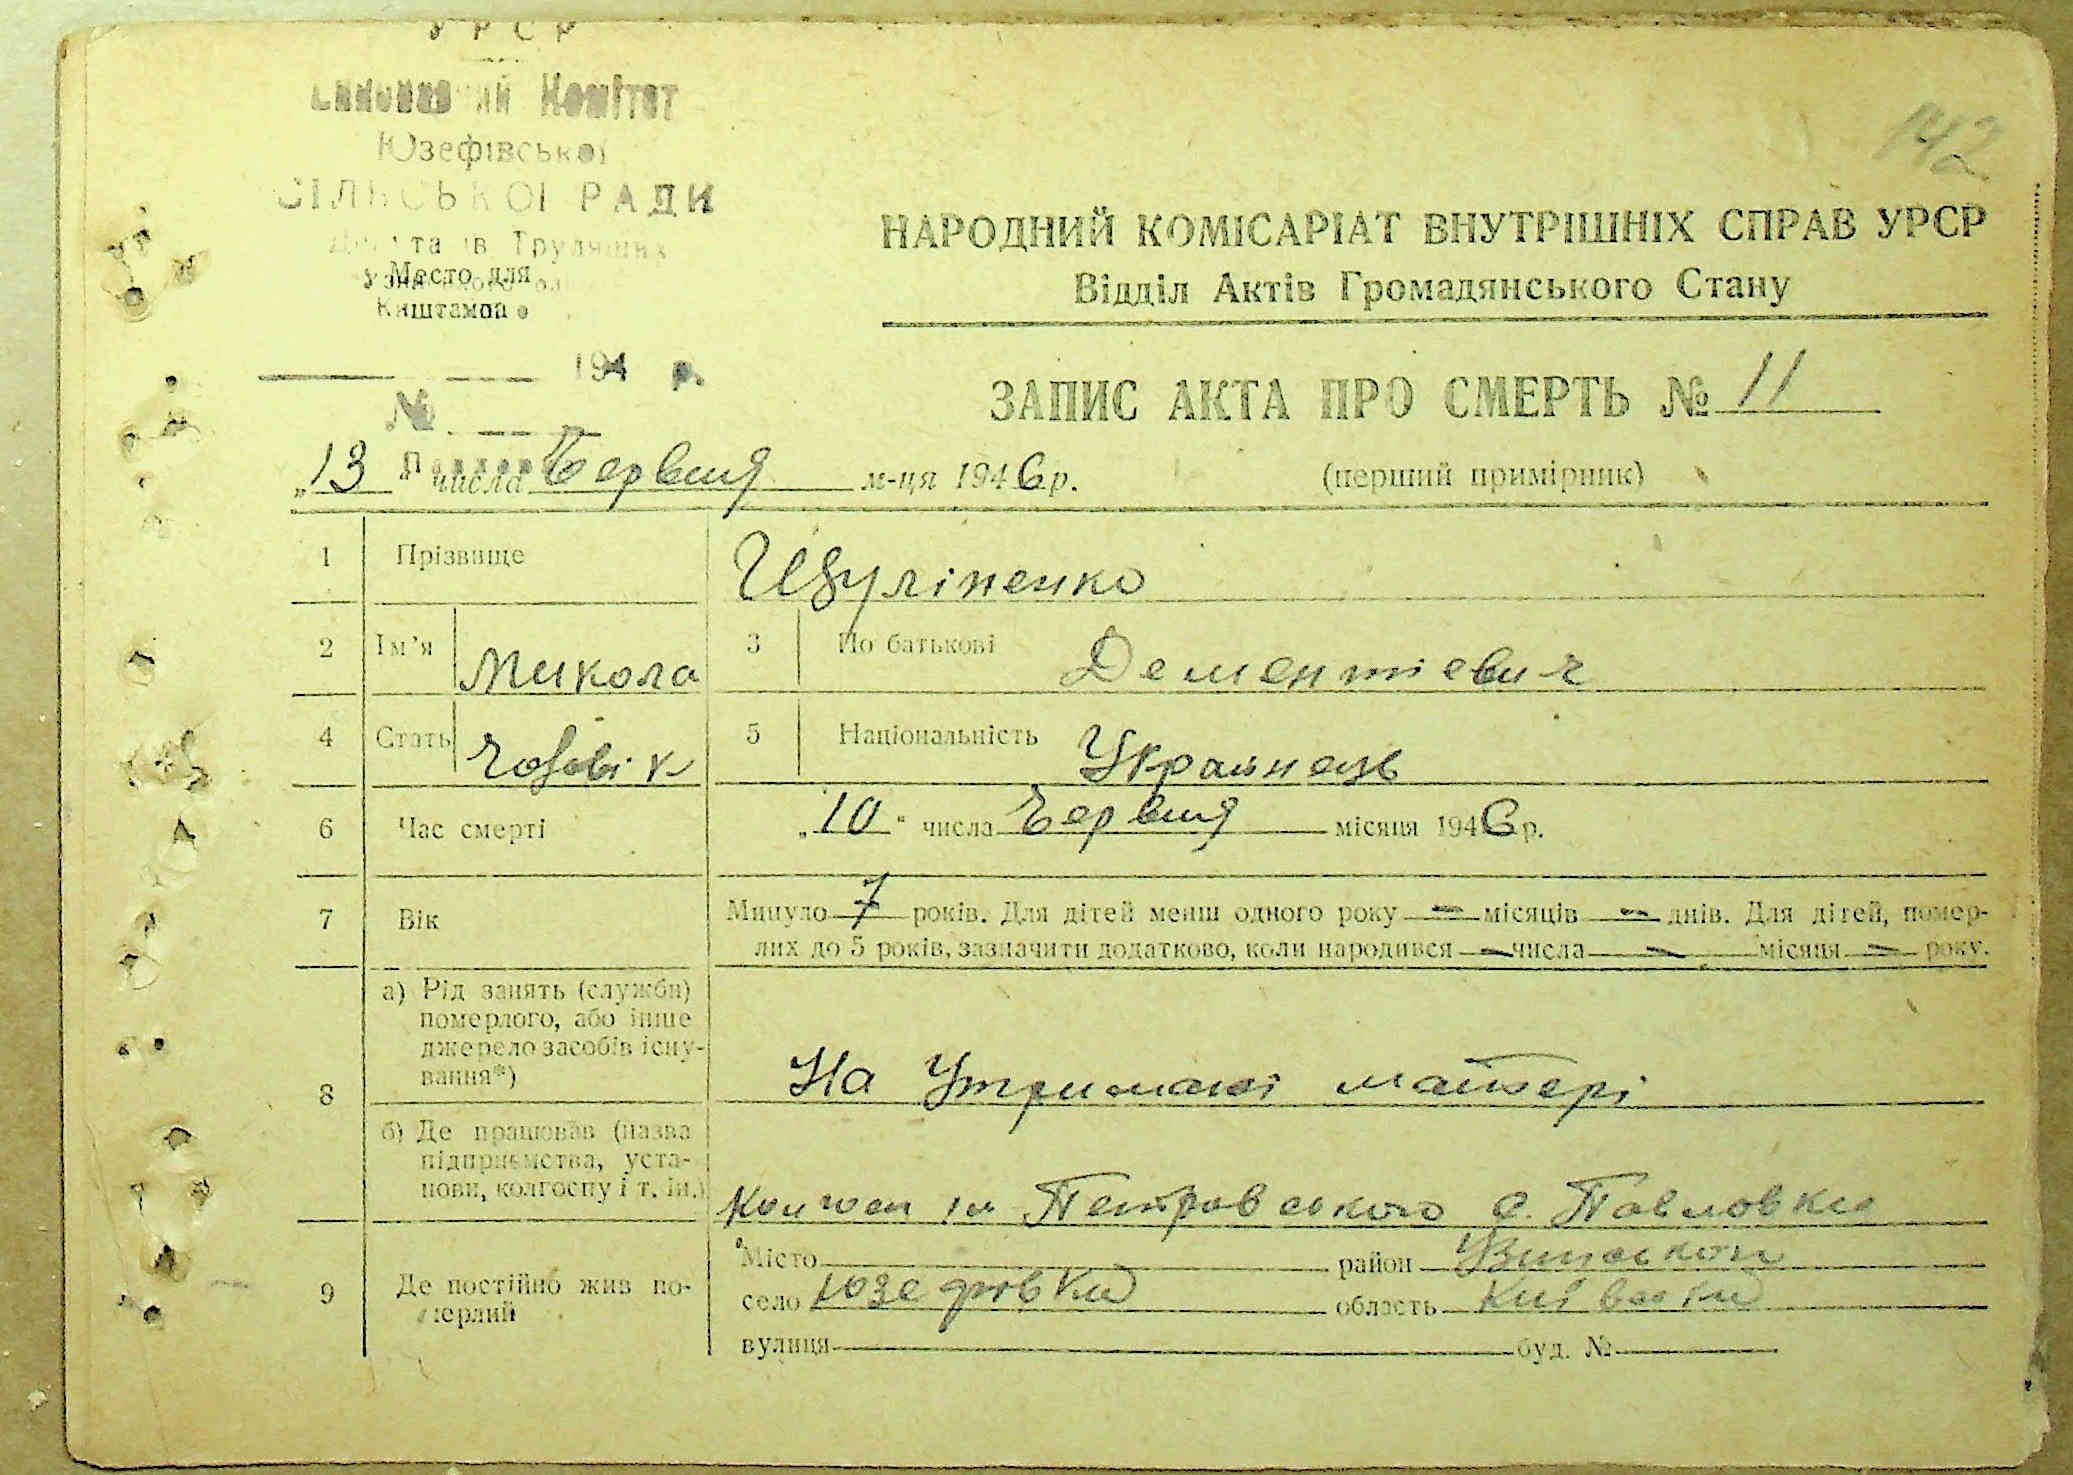 УРСР
Виконавчий Комітет
Юзефівської
СІЛЬСЬКОЇ РАДИ
Депутатів Трудящих
Место для
штампа
142
НАРОДНИЙ КОМІСАРІАТ ВНУТРІШНІХ СПРАВ УРСР
Відділ Актів Громадянського Стану
194 р.
№
ЗАПИС АКТА ПРО СМЕРТЬ № 11
„13“ числа Червня м-ця 1946 р. (перший примірник)
1 Прізвище
2 Ім’я Микола 3 По батькові Дементієвич
4 Стать Чоловік 5 Національність Українець
6 Час смерті „10“ числа Червня місяця 1946 р.
7 Вік Минуло 7 років. Для дітей менш одного року — місяців — днів. Для дітей, помер-
лих до 5 років, зазначити додатково, коли народився — числа — місяця — року.
8 а) Рід занять (служби)
померлого, або інше
джерело засобів існу-
вання*)
На Утримані матері
б) Де працював (назва
підприємства, уста-
нови, колгоспу і т. ін.)
Колгосп ім Петровського с. Павловки
9 Де постійно жив по-
мерлий
Місто район
село Юзефовки область Київській
вулиця буд. №